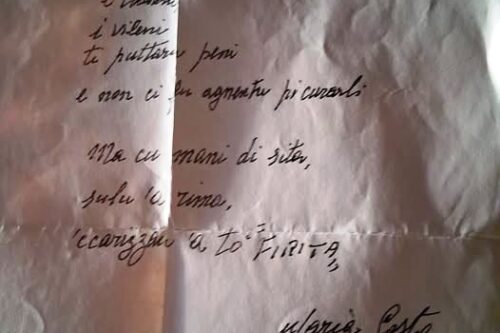 i vileni
ti puttaru peni
e non ci fu agnentu pi curarli
Ma cu mani di sita,
sulu 'a rima,
'ccarizzau 'a to "FIRITA"
Maria Costa